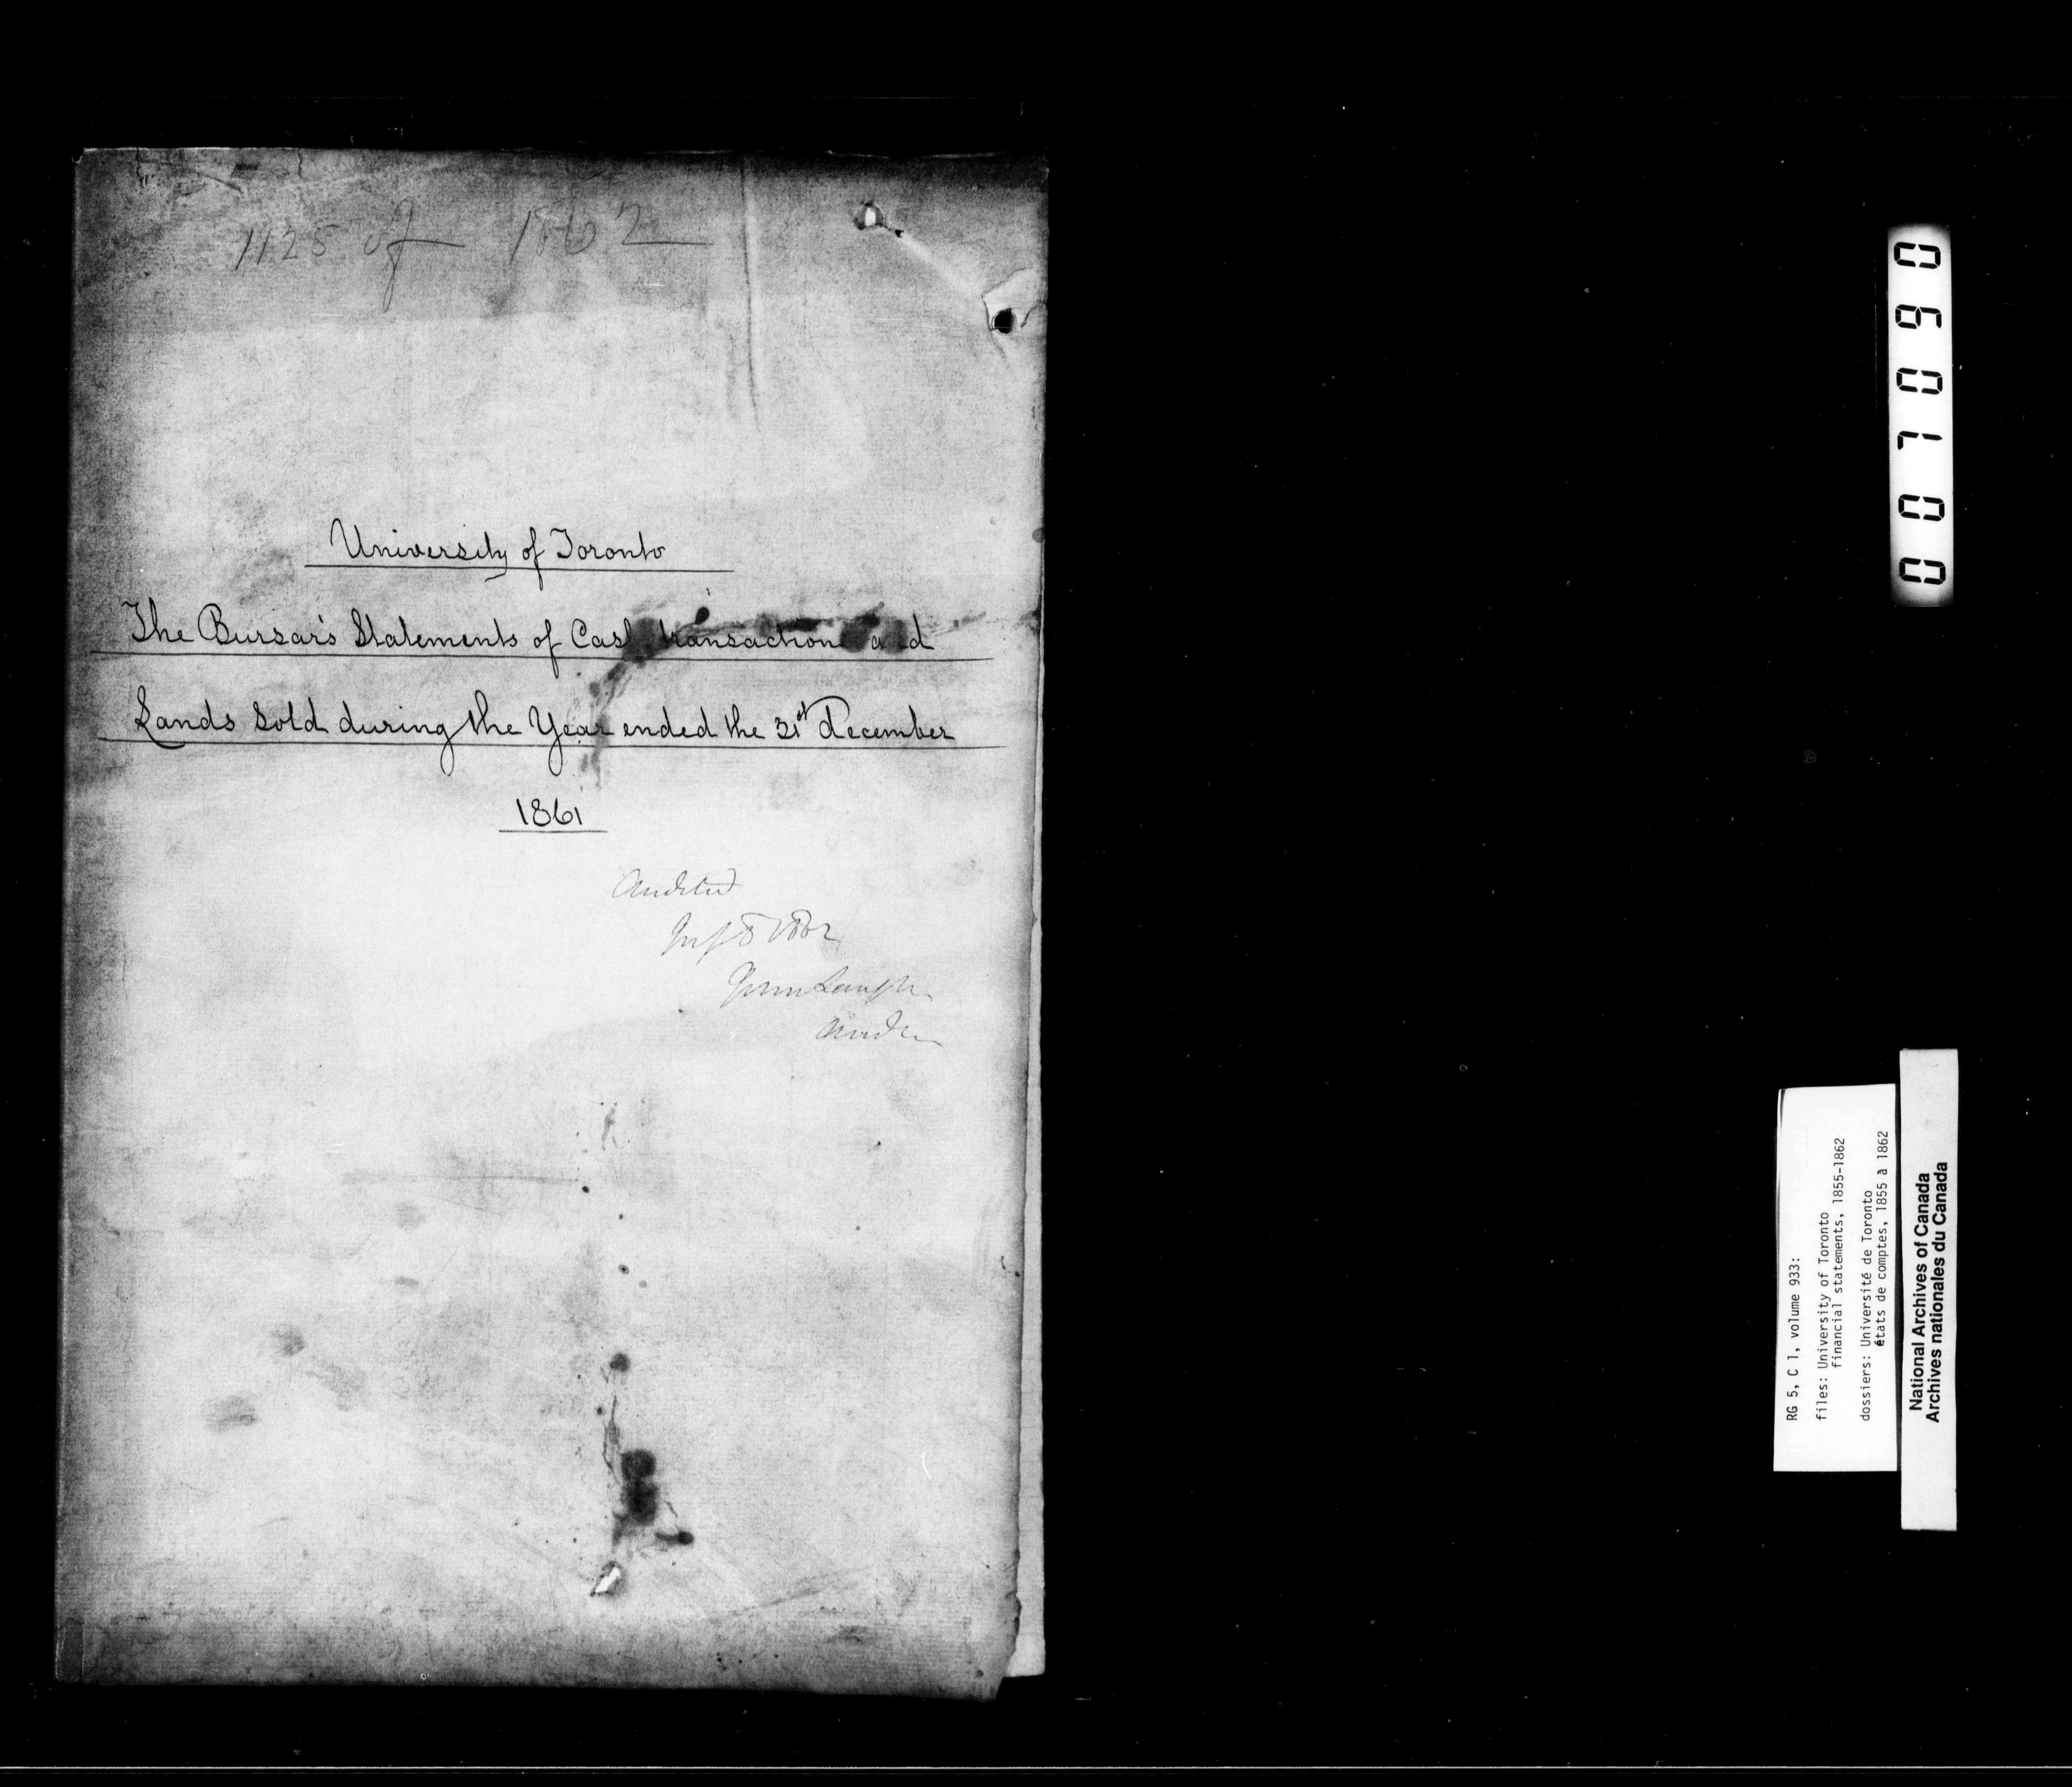 1125 of 1862
University of Toronto
The Bursar's Statements of Cash transactions and
Lands Sold during the Year ended the 31st December
1861
Audited
1862
John Langton
Auditor
090100
RG 5, C 1, volume 933:
files: University of Toronto
financial statements, 1855-1862
dossiers: Université de Toronto
états de comptes, 1855 à 1862
National Archives of Canada
Archives nationales du Canada